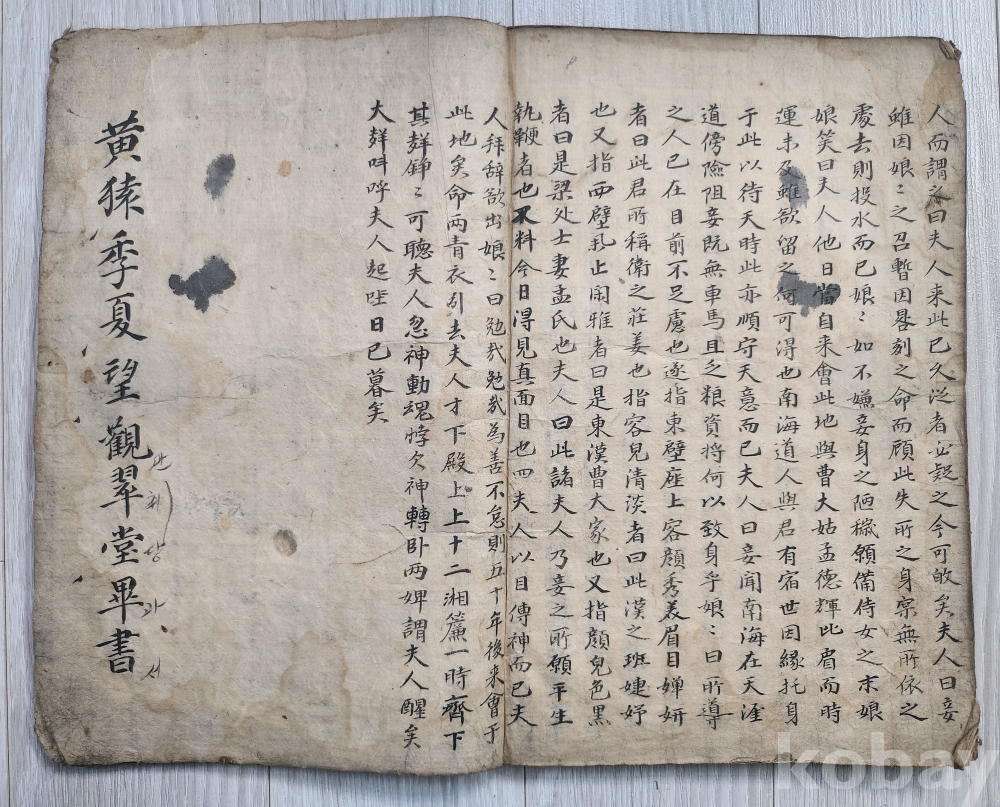 人而謂之曰夫人来此已久從者必疑之今可敀矣夫人曰妾
雖因娘〻之召暫因晷刻之命而顧此失所之身宲無所依之
處去則投水而已娘〻如不嫌妾身之陋穢願備侍女之末娘
娘笑曰夫人他日當自来會此地與曹大姑孟德輝此眉而時
運未及雖欲留之何可得也南海道人與君有宿世因緣托身
于此以待天時此亦順守天意而已夫人曰妾聞南海在天涯
道傍險阻妾既無車馬且乏粮資将何以致身乎娘〻曰所導
之人已在目前不足慮也遂指東壁座上容顔秀羙眉目嬋妍
者曰此君所稱衛之莊姜也指容皃清淡者曰此漢之班婕妤
也又指西壁
止閑雅者曰是東漢曹大家也又指顔皃色黒
者曰是梁处士妻孟氏也夫人曰此諸夫人乃妾之所願平生
執鞭者也不料今日得見真面目也四夫人以目傳神而已夫
人拜辞欲出娘〻曰勉哉勉哉為善不怠則五十年後来會于
此地矣命两青衣引去夫人才下殿上上十二湘簾一時齊下
其聲錚〻可聽夫人忽神動魂悸欠神轉卧两婢謂夫人醒矣
大聲呌呼夫人起坐日已暮矣
黄猿季夏望觀翠堂畢書
관
취
당
서
kobay